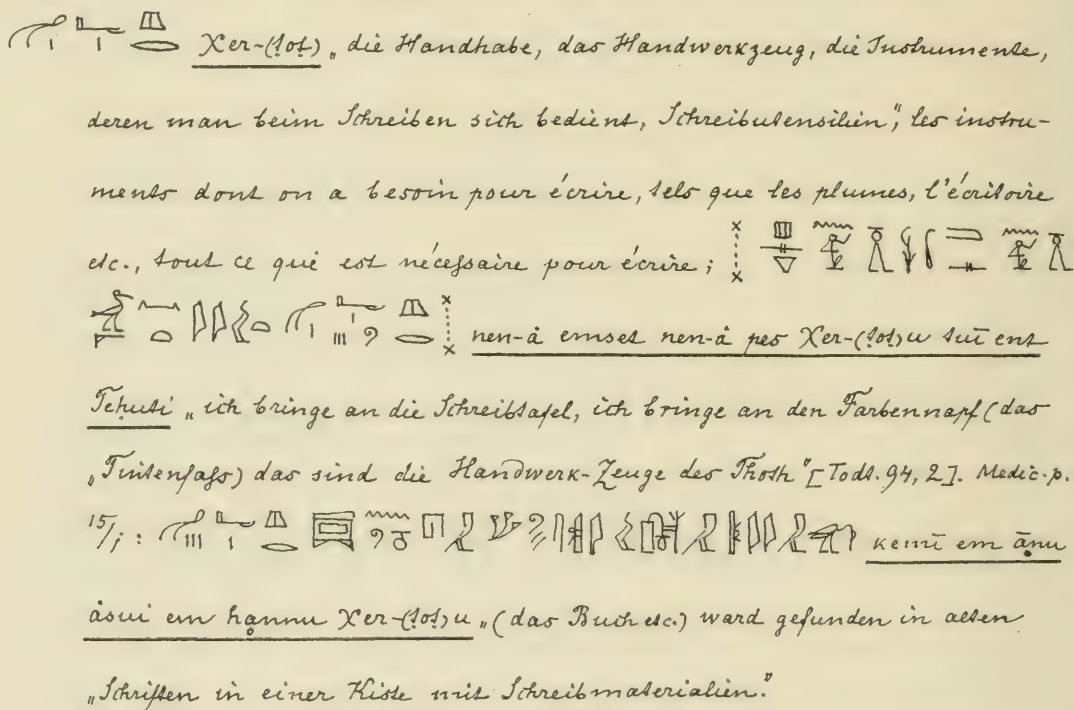 Xer-(ṭoṭ) „die Handhabe, das Handwerkzeug, die Instrumente,
deren man beim Schreiben sich bedient, Schreibutensilien“, les instru-
ments dont on a besoin pour écrire, tels que les plumes, l'écritoire
etc., tout ce que est nécessaire pour écrire;
nen-à emset nen-à pes Xer-(ṭoṭ)u tuī ent
Teḥuti „ich bringe an die Schreibtafel, ich bringe an den Farbennapf (das
„Tintenfass) das sind die Handwerk-Zeuge des Thoth“ [Todt. 94, 2]. Medic. p.
15/1: kemī em ānu
àsui em hannu Xer-(ṭoṭ)u „(das Buch etc.) ward gefunden in alten
„Schriften in einer Kiste mit Schreibmaterialien.“